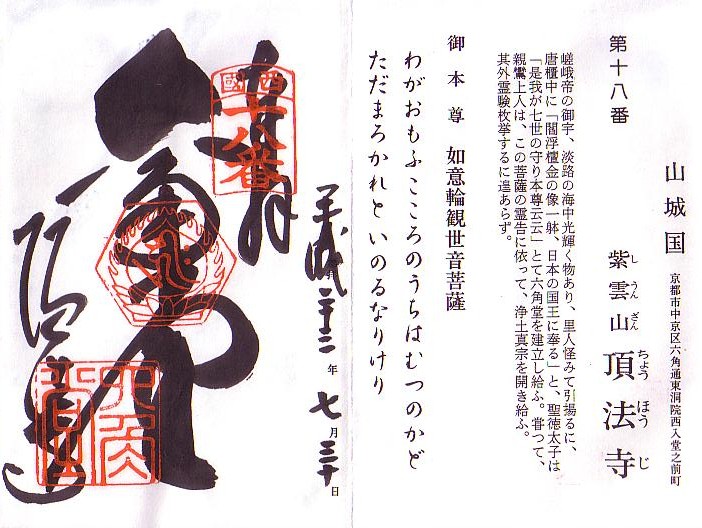 山城国
京都市中京区六角通東洞院西入堂之前町
第十八番
紫雲山 頂法寺
しうんざん ちょうほうじ
嵯峨帝の御宇、淡路の海中光輝く物あり、里人怪みて引揚るに、
唐櫃中に「閻浮檀金の像一躰、日本の国王に奉る」と、聖徳太子は
「是我が七世の守り本尊云云」とて六角堂を建立し給ふ。嘗つて、
親鸞上人は、この菩薩の霊告に依って、浄土真宗を開き給ふ。
其外霊験枚挙するに遑あらず。
御本尊 如意輪観世音菩薩
わがおもふこころのうちはむつのかど
ただまろかれといのるなりけり
平成二十二年七月三十日
奉拝
西國
十八番